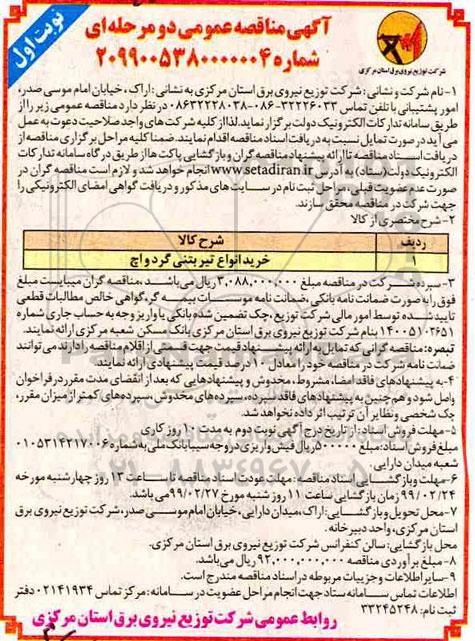 نوبت اول
آگهی مناقصه عمومی دو مرحله ای
شماره ۲۰۹۹۰۰۵۳۸۰۰۰۰۰۰۴
شرکت توزیع نیروی برق استان مرکزی
۱- نام شرکت و نشانی: شرکت توزیع نیروی برق استان مرکزی به نشانی: اراک، خیابان امام موسی صدر،
امور پشتیبانی با تلفن تماس ۳۲۲۲۶۰۳۳-۰۸۶ – ۰۸۶۳۲۲۲۸۰۳۸ در نظر دارد مناقصه عمومی زیر را از
طریق سامانه تدارکات الکترونیک دولت برگزار نماید. لذا از کلیه شرکت های واجد صلاحیت دعوت به عمل
می آید در صورت تمایل نسبت به دریافت اسناد مناقصه اقدام نمایند. ضمنا کلیه مراحل برگزاری مناقصه از
دریافت اسناد مناقصه تا ارائه پیشنهاد مناقصه گران و بازگشایی پاکت ها از طریق درگاه سامانه تدارکات
الکترونیک دولت (ستاد) به آدرس www.setadiran.ir انجام خواهد شد و لازم است مناقصه گران در
صورت عدم عضویت قبلی، مراحل ثبت نام در سایت های مذکور و دریافت گواهی امضای الکترونیکی را
جهت شرکت در مناقصه محقق سازند.
۲- شرح مختصری از کالا
ردیف شرح کالا
۱ خرید انواع تیر بتنی گرد و اچ
۳- سپرده شرکت در مناقصه مبلغ ۳,۰۸۸,۰۰۰,۰۰۰ ریال می باشد، مناقصه گران میبایست مبلغ
فوق را به صورت ضمانت نامه بانکی، ضمانت نامه موسسات بیمه گر، گواهی خالص مطالبات قطعی
تایید شده توسط امور مالی شرکت توزیع، چک تضمین شده بانکی یا واریز وجه به حساب جاری شماره
۱۴۰۰۵۱۰۲۶۵۱ بنام شرکت توزیع نیروی برق استان مرکزی بانک مسکن شعبه مرکزی ارائه نمایند.
تبصره: مناقصه گرانی که تمایل به ارائه پیشنهاد قیمت جهت قسمتی از اقلام مناقصه را دارند می توانند
ضمانت نامه شرکت در مناقصه خود را معادل ۱۰ درصد قیمت پیشنهادی ارائه نمایند.
۴- به پیشنهادهای فاقد امضا، مشروط، مخدوش و پیشنهادهایی که بعد از انقضای مدت مقرر در فراخوان
واصل شود و هم چنین به پیشنهادهای فاقد سپرده، سپرده های مخدوش، سپرده های کمتر از میزان مقرر،
چک شخصی و نظایر آن ترتیب اثر داده نخواهد شد.
۵- مهلت فروش اسناد: از تاریخ درج آگهی نوبت دوم به مدت ۱۰ روز کاری
مبلغ فروش اسناد: مبلغ ۵۰۰۰۰۰ ریال فیش واریزی در وجه سیبا بانک ملی به شماره ۰۱۰۵۳۱۴۲۱۷۰۰۶
شعبه میدان دارایی.
۶- مهلت و بازگشایی اسناد مناقصه: مهلت عودت اسناد مناقصه تا ساعت ۱۳ روز چهارشنبه مورخه
۹۹/۰۲/۲۴ زمان بازگشایی ساعت ۱۱ روز شنبه مورخ ۹۹/۰۲/۲۷ می باشد.
۷- محل تحویل و بازگشایی: اراک، میدان دارایی، خیابان امام موسی صدر، شرکت توزیع نیروی برق
استان مرکزی، واحد دبیرخانه.
محل بازگشایی: سالن کنفرانس شرکت توزیع نیروی برق استان مرکزی.
۸- مبلغ برآوردی مناقصه ۹۲,۰۰۰,۰۰۰,۰۰۰ ریال می باشد.
۹- سایر اطلاعات و جزییات مربوطه در اسناد مناقصه مندرج است.
اطلاعات تماس سامانه ستاد جهت انجام مراحل عضویت در سامانه: مرکز تماس ۰۲۱۴۱۹۳۴ دفتر
ثبت نام: ۳۳۲۴۵۲۴۸
روابط عمومی شرکت توزیع نیروی برق استان مرکزی